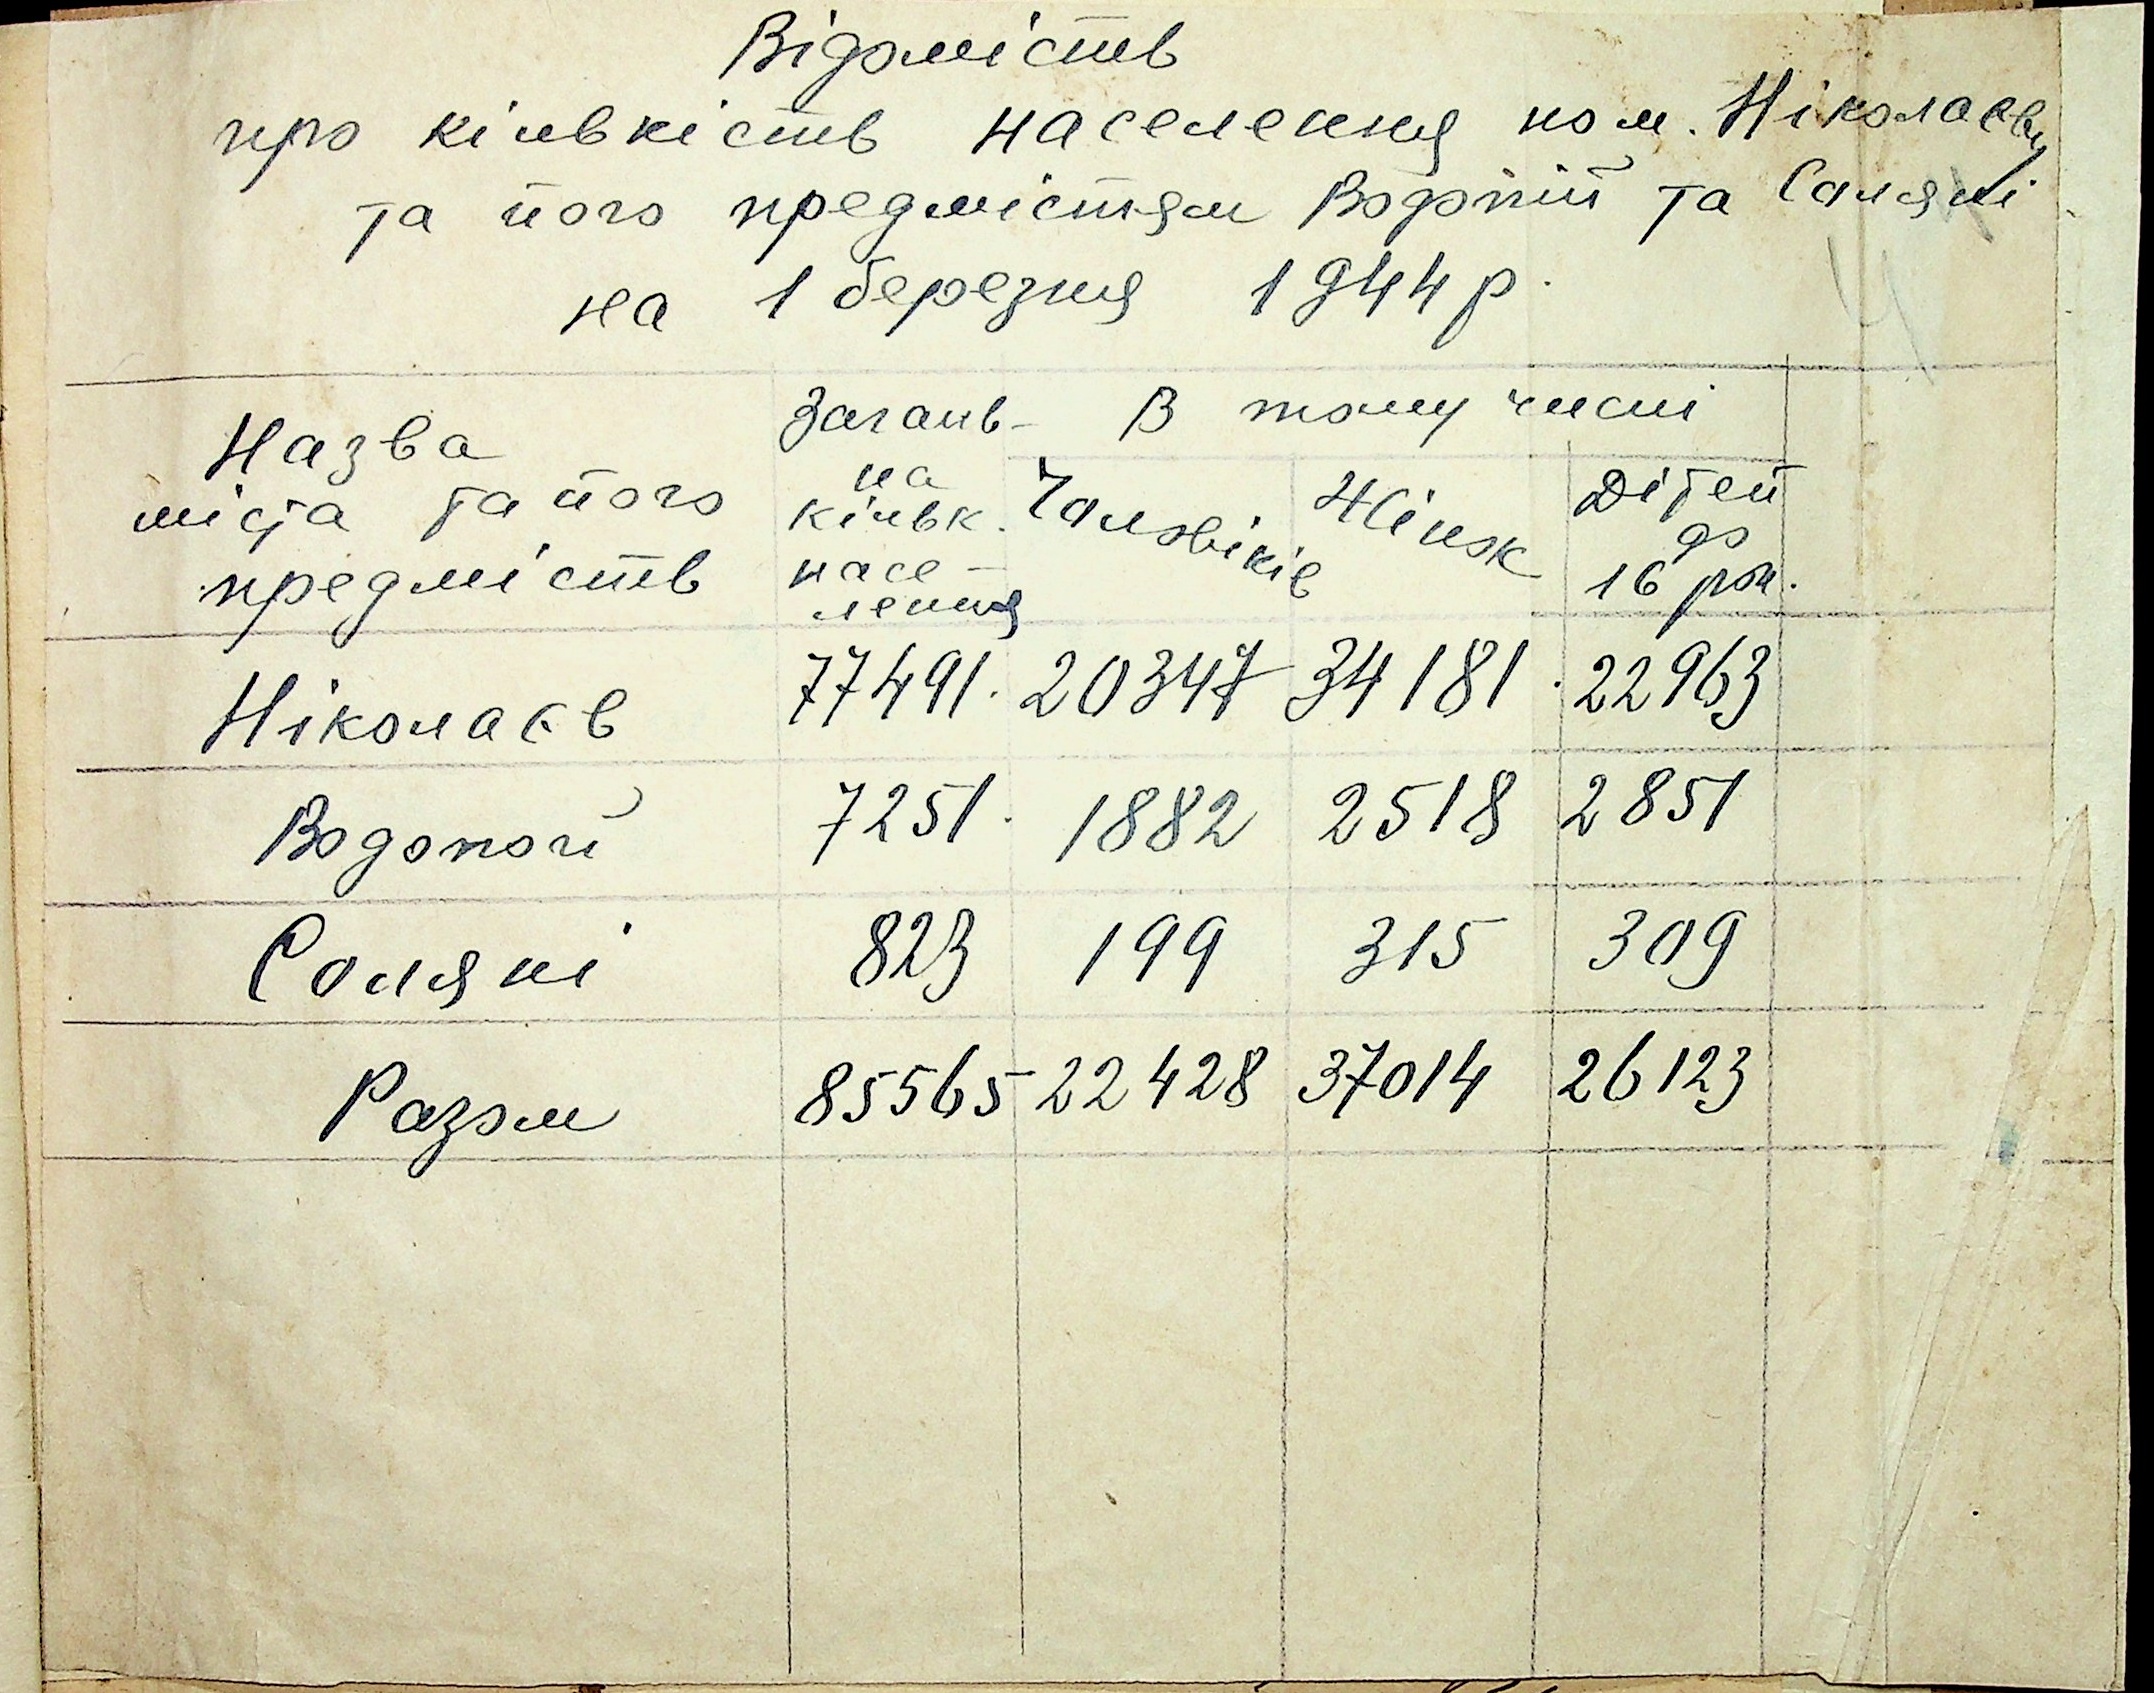 Відомість
про кількість населення по м. Ніколаєву
та його предмістям Водопій та Соляні
на 1 березня 1944 р.
Назва міста та його предмість Загаль- на кільк. насе- лення В тому числі
Чоловіків Жінок Дітей до 16 рок.
Ніколаєв 77491. 20347 34181. 22963
Водопой 7251. 1882 2518 2851
Соляні 823 199 315 309
Разом 85565 22428 37014 26123